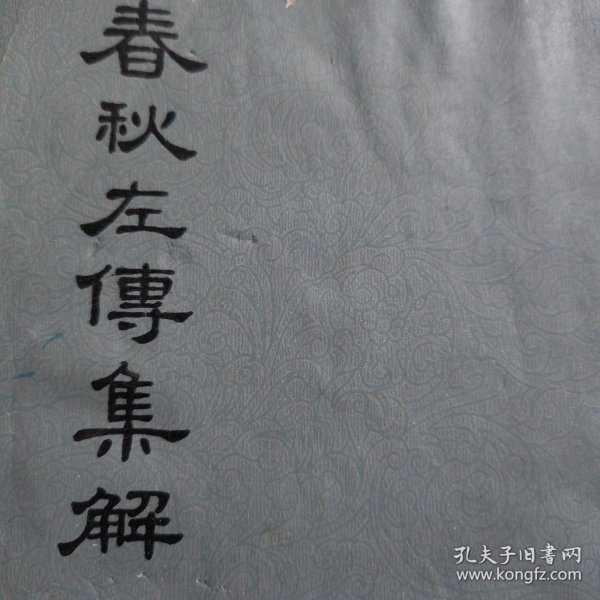 春秋左傳集解
孔夫子旧书网
www.kongfz.com